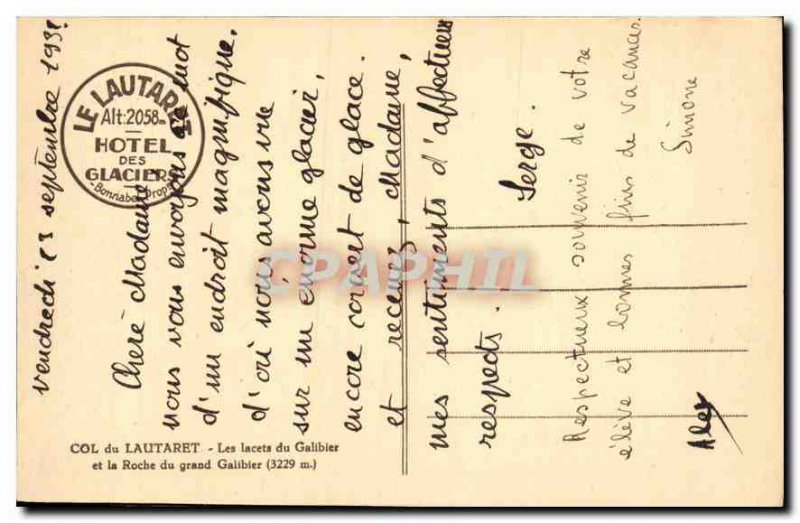 vendredi 23 septembre 1938
Chère Madame
nous vous envoyons ce mot
d'un endroit magnifique.
d'où nous avons vue
sur un énorme glacier,
encore couvert de glace.
et recevez, Madame,
mes sentiments d'affectueux
respects.
Serge.
Respectueux souvenir de votre
élève et bonnes fins de vacances.
Simone
Alex
LE LAUTARET
Alt: 2058m
HOTEL
DES
GLACIERS
-Bonnabel Propr-
COL du LAUTARET - Les lacets du Galibier
et la Roche du grand Galibier (3229 m.)
CPAPHIL